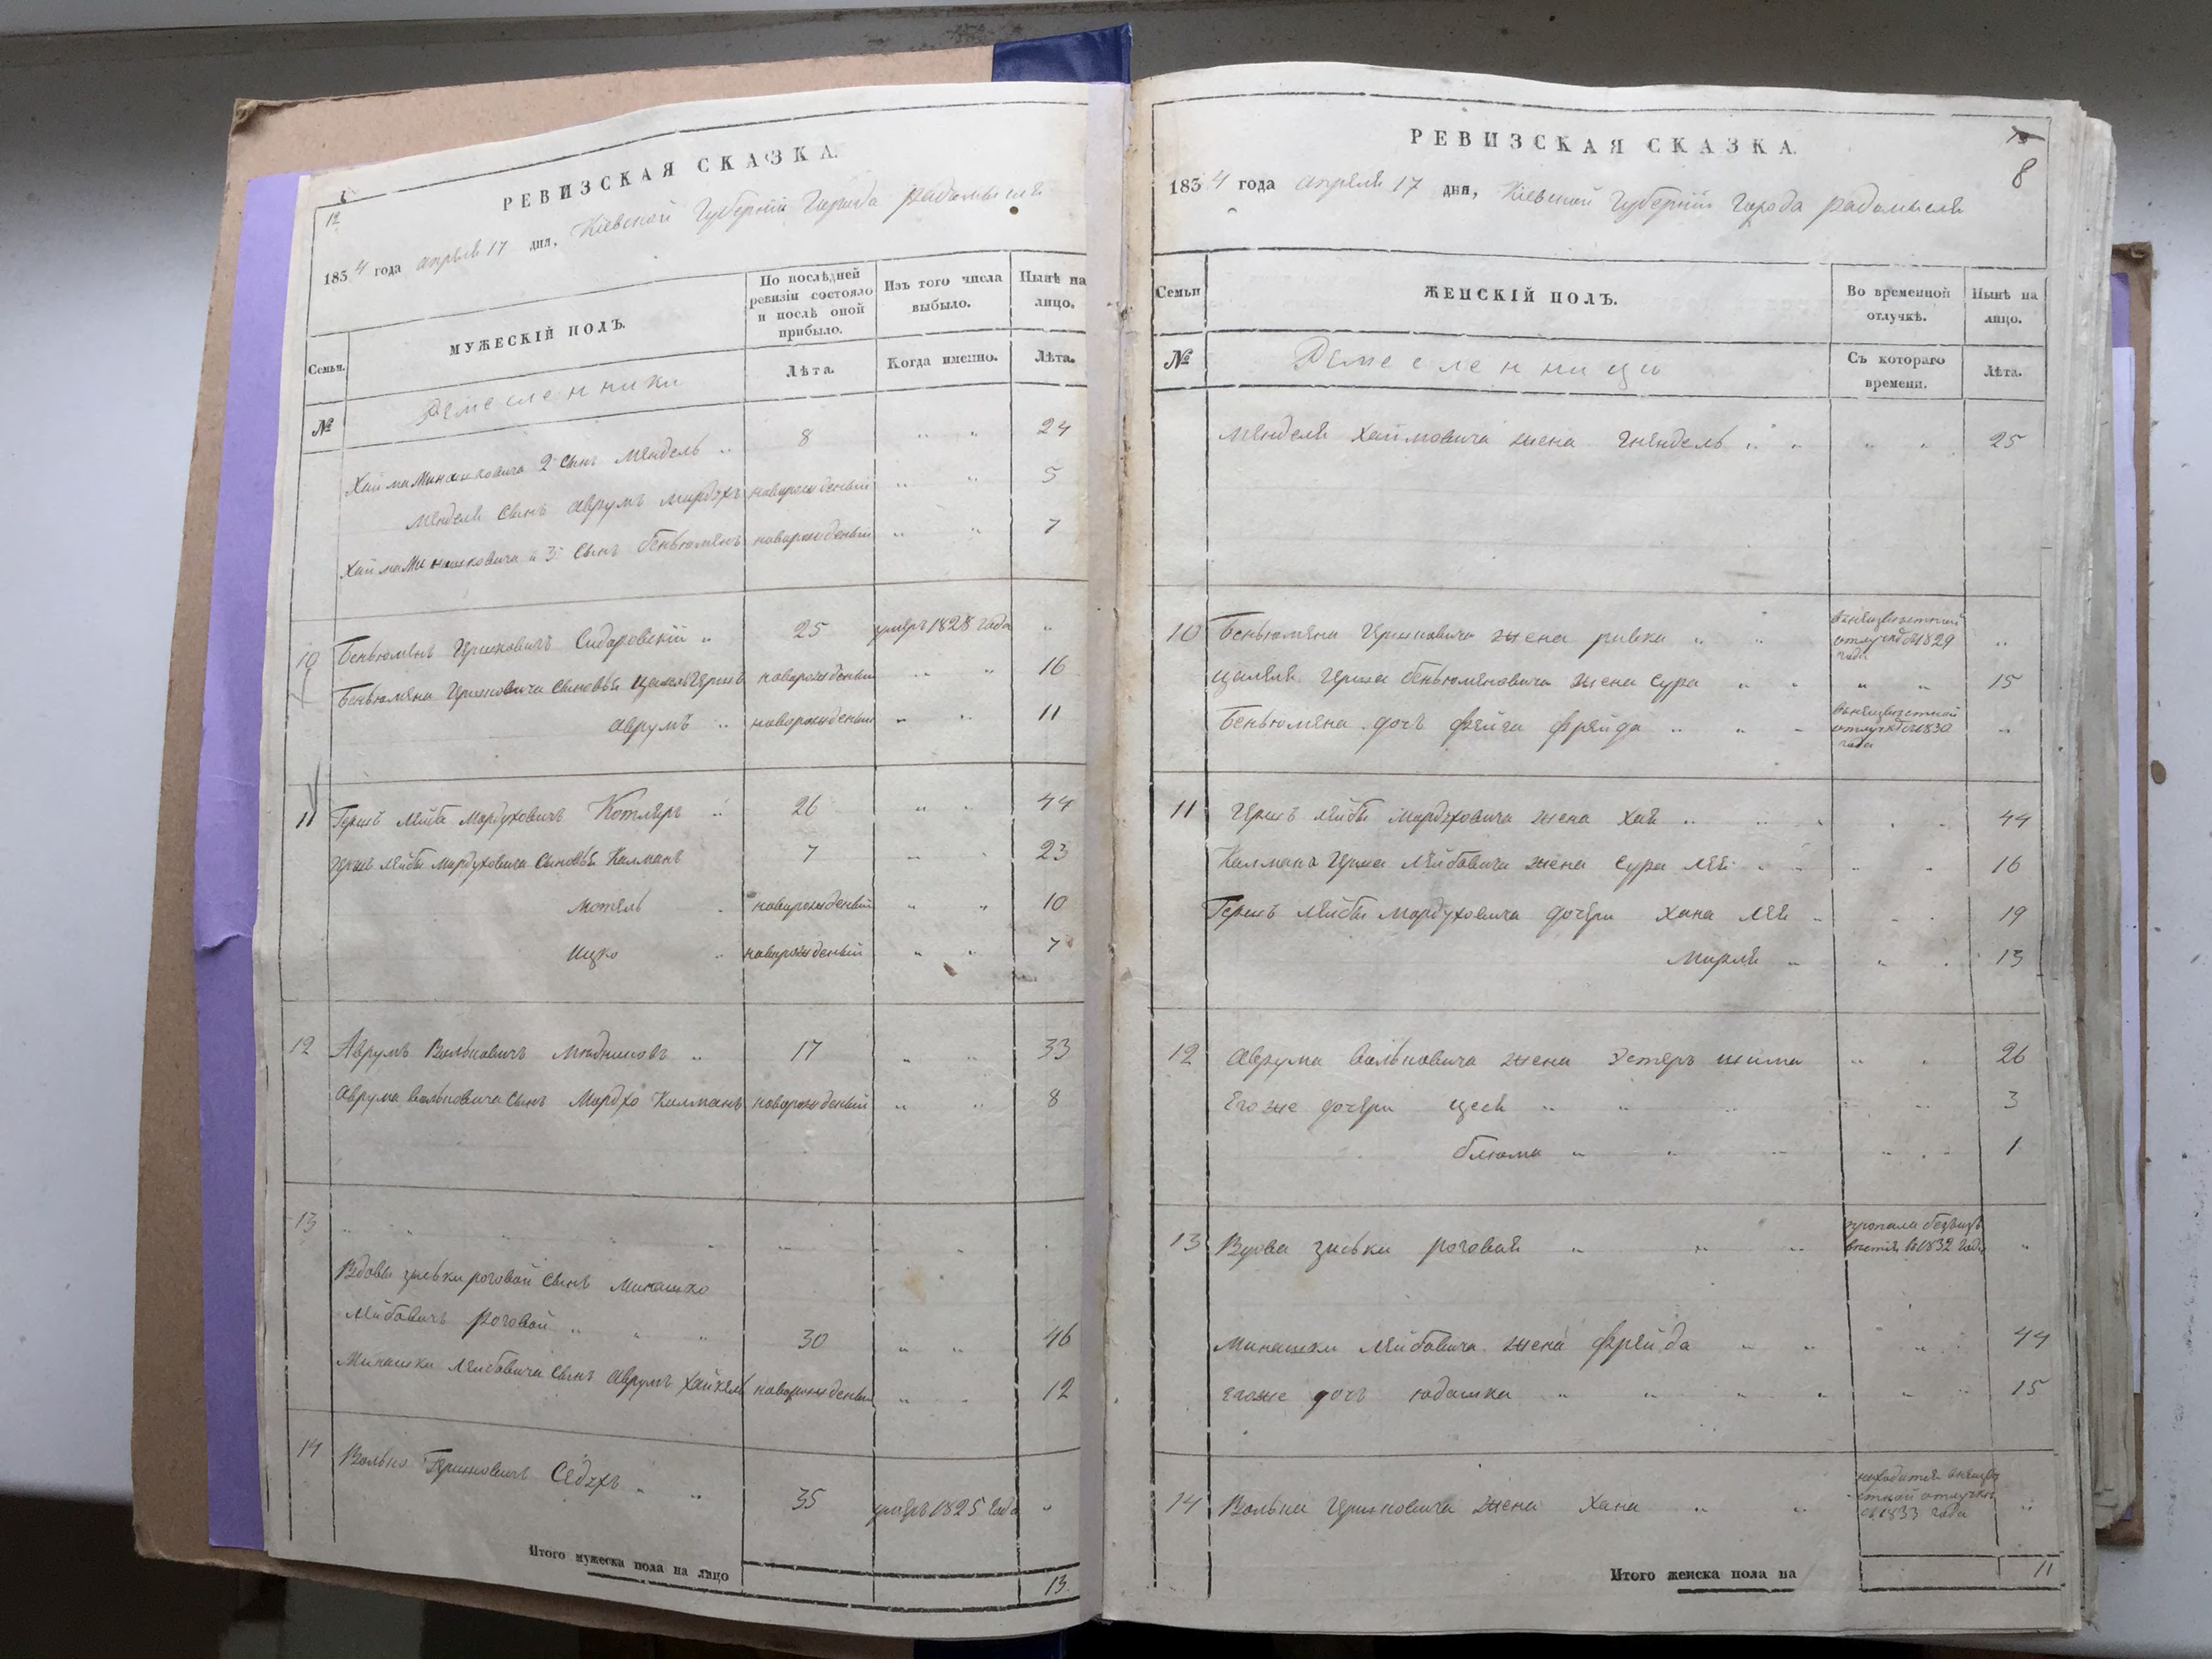 12
РЕВИЗСКАЯ СКАЗКА.
1854 года апреля 17 дня, Кіевской Губерніи Города Радомысля
Семьи.
МУЖЕСКІЙ ПОЛЪ.
По послѣдней ревизіи состояло и послѣ оной прибыло.
Изъ того числа выбыло.
Нынѣ на лицо.
№
Ремесленники
Лѣта.
Когда именно.
Лѣта.
Хаима Минашковича 2й сынъ Мендель „ 8 „ „ 24
Менделя сынъ Аврумъ Мордухъ новорожденый „ „ 5
Хаима Минашковича 3й сынъ Беньюменъ новорожденый „ „ 7
10 Беньюменъ Гершковичъ Сидоровскій „ 25 умеръ 1828 года „
Беньюмена Гершковича сыновья Цалель Гершъ новорожденый „ „ 16
Аврумъ „ новорожденый „ „ 11
11 Гершъ Лейба Мордуховичъ Котляръ „ 26 „ „ 44
Гершъ Лейбы Мордуховича сыновья Калманъ 7 „ „ 23
Мотель „ новорожденый „ „ 10
Ицко „ новорожденый „ „ 7
12 Аврумъ Вольковичъ Медниковъ „ 17 „ „ 33
Аврума Вольковича сынъ Мордхо Калманъ новорожденый „ „ 8
13 „ „ „ „ „ „ „ „
Вдовы Зиськи Роговой сынъ Минашко
Лейбовичъ Роговой „ „ „ 30 „ „ 46
Минашки Лейбовича сынъ Аврумъ Хайкель новорожденый „ „ 12
14 Волько Гершковичъ Седухъ „ „ 35 умеръ 1825 года „
Итого мужеска пола на лицо 13
8
РЕВИЗСКАЯ СКАЗКА.
1854 года апреля 17 дня, Кіевской Губерніи Города Радомысля
Семьи
ЖЕНСКІЙ ПОЛЪ.
Во временной отлучкѣ.
Нынѣ на лицо.
№
Ремесленници
Съ котораго времени.
Лѣта.
Менделя Хаимовича жена Гнендель „ „ „ „ 25
10 Беньюмена Гершковича жена Ривка „ „ въ неизвестной отлучкѣ съ 1829 года „
Цалеля Герша Беньюменовича жена Сура „ „ „ „ 15
Беньюмена дочь Фейга Фрейда „ „ „ въ неизвестной отлучкѣ съ 1830 года „
11 Гершъ Лейбы Мордуховича жена Хая „ „ „ „ „ 44
Калмана Герша Лейбовича жена Сура Лея „ „ „ „ 16
Гершъ Лейбы Мордуховича дочери Хана Лея „ „ „ 19
Мирля „ „ „ 13
12 Аврума Вольковича жена Эстеръ Шима „ „ 26
Его же дочери Цеся „ „ „ „ „ 3
Блюма „ „ „ „ „ 1
13 Вдова Зиська Роговая „ „ „ пропала безъ извѣстія въ 1832 году „
Минашки Лейбовича жена Фрейда „ „ „ „ 44
Его же дочь Юдашка „ „ „ „ „ „ 15
14 Волька Гершковича жена Хана „ „ находится въ неизвестной отлучкѣ съ 1833 года „
Итого женска пола на 11